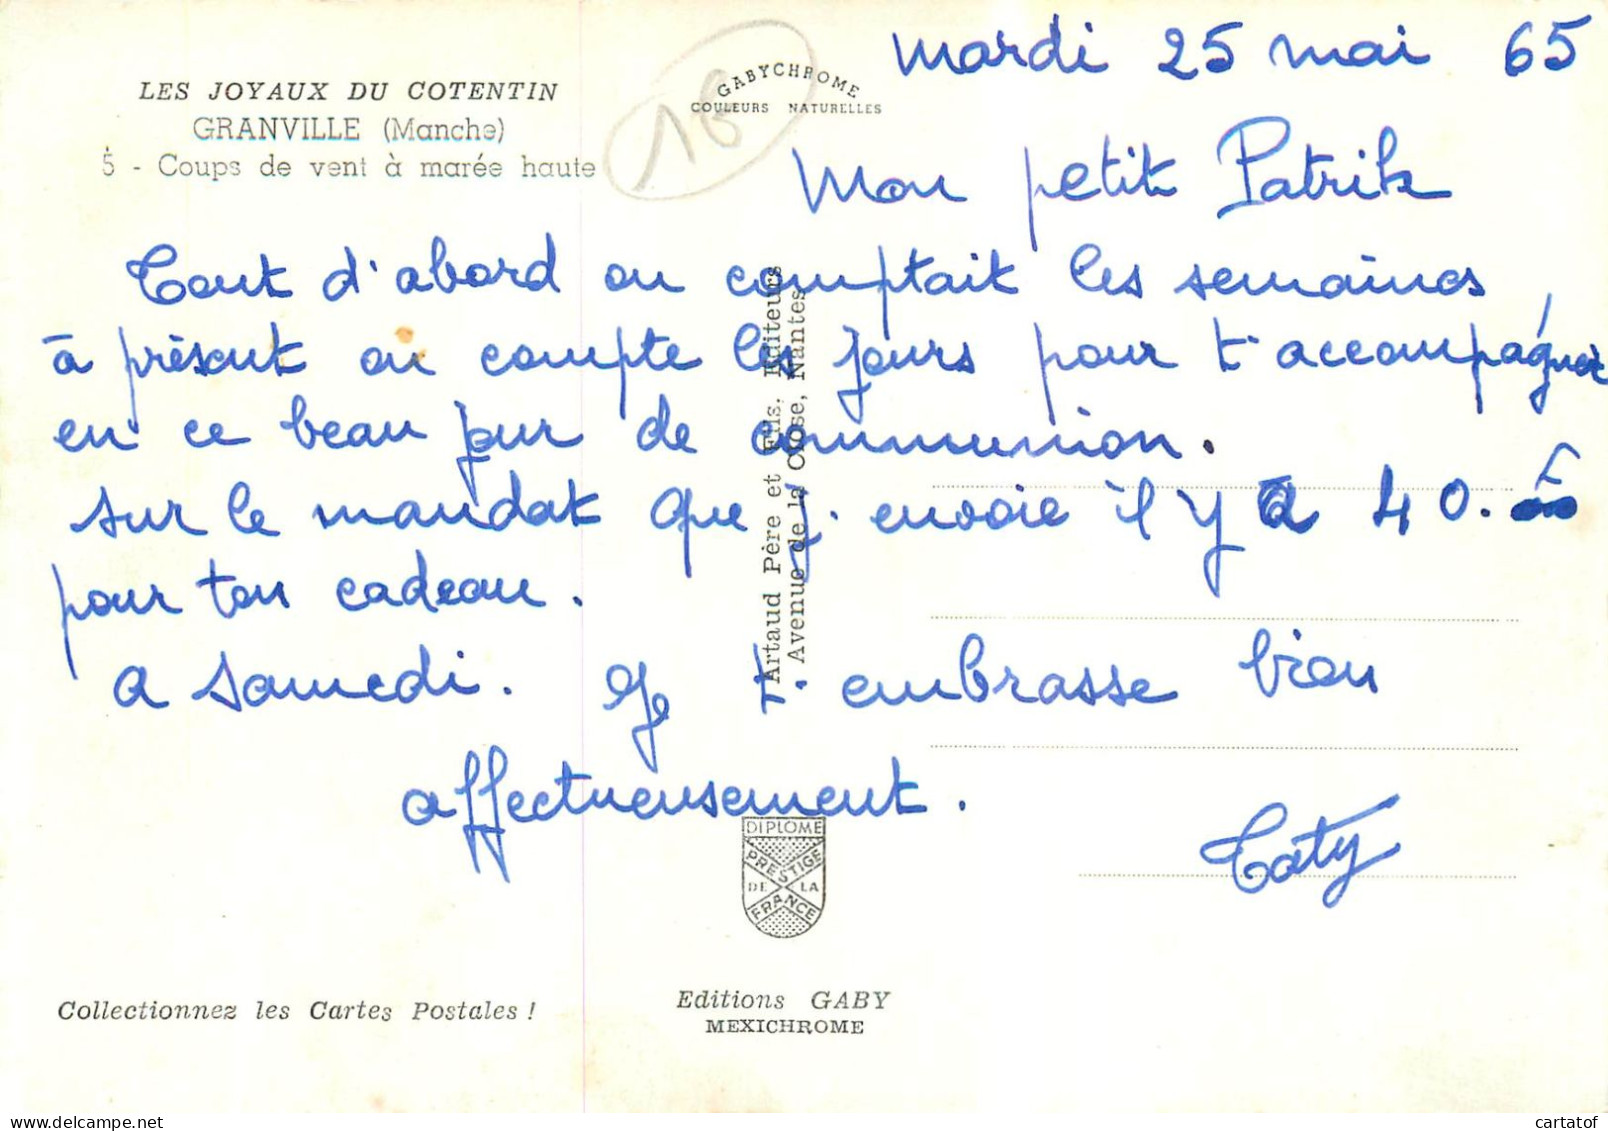 mardi 25 mai 65
LES JOYAUX DU COTENTIN
GRANVILLE (Manche)
5 - Coups de vent à marée haute
GABYCHROME
COULEURS NATURELLES
16
Mon petit Patrik
Tout d'abord on comptait les semaines,
à présent on compte les jours pour t'accompagner
en ce beau jour de communion.
sur le mandat que j'envoie il y a 40.
pour ton cadeau.
a samedi. Je t'embrasse bien
affectueusement.
Caty
Artaud Père et Fils, Editeurs
Avenue de la Close, Nantes
DIPLOME
PRESTIGE
DE LA
FRANCE
Collectionnez les Cartes Postales !
Editions GABY
MEXICHROME
cartatof